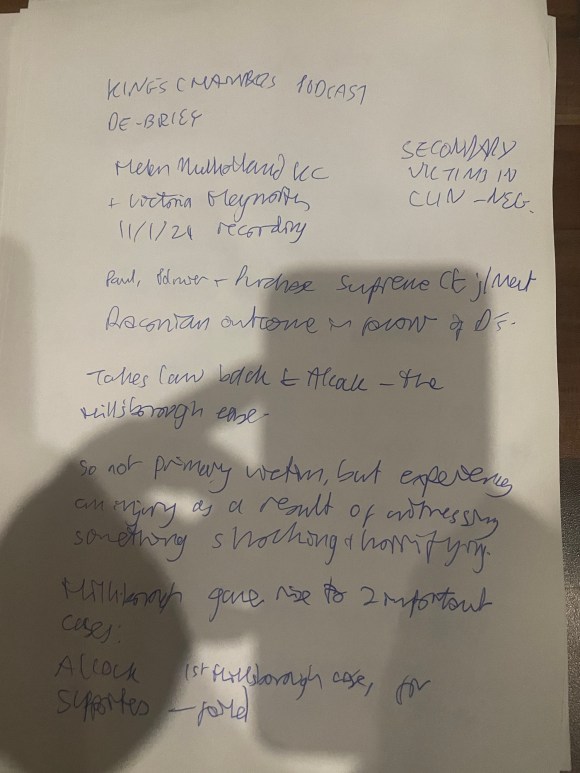 KINGS CHAMBERS PODCAST
DE-BRIEF
SECONDARY
VICTIMS IN
CLIN-NEG.
Helen Mulholland KC
+ Victoria Heyworth
11/1/24 recording
Paul, Polmear + Purchase Supreme Ct j/ment
Draconian outcome in favour of D's.
Takes law back to Alcock - the
Hillsborough case.
So not primary victim, but experiencing
an injury as a result of witnessing
something shocking + horrifying.
Hillsborough gave rise to 2 important
cases:
Alcock 1st Hillsborough case, for
supporters - failed